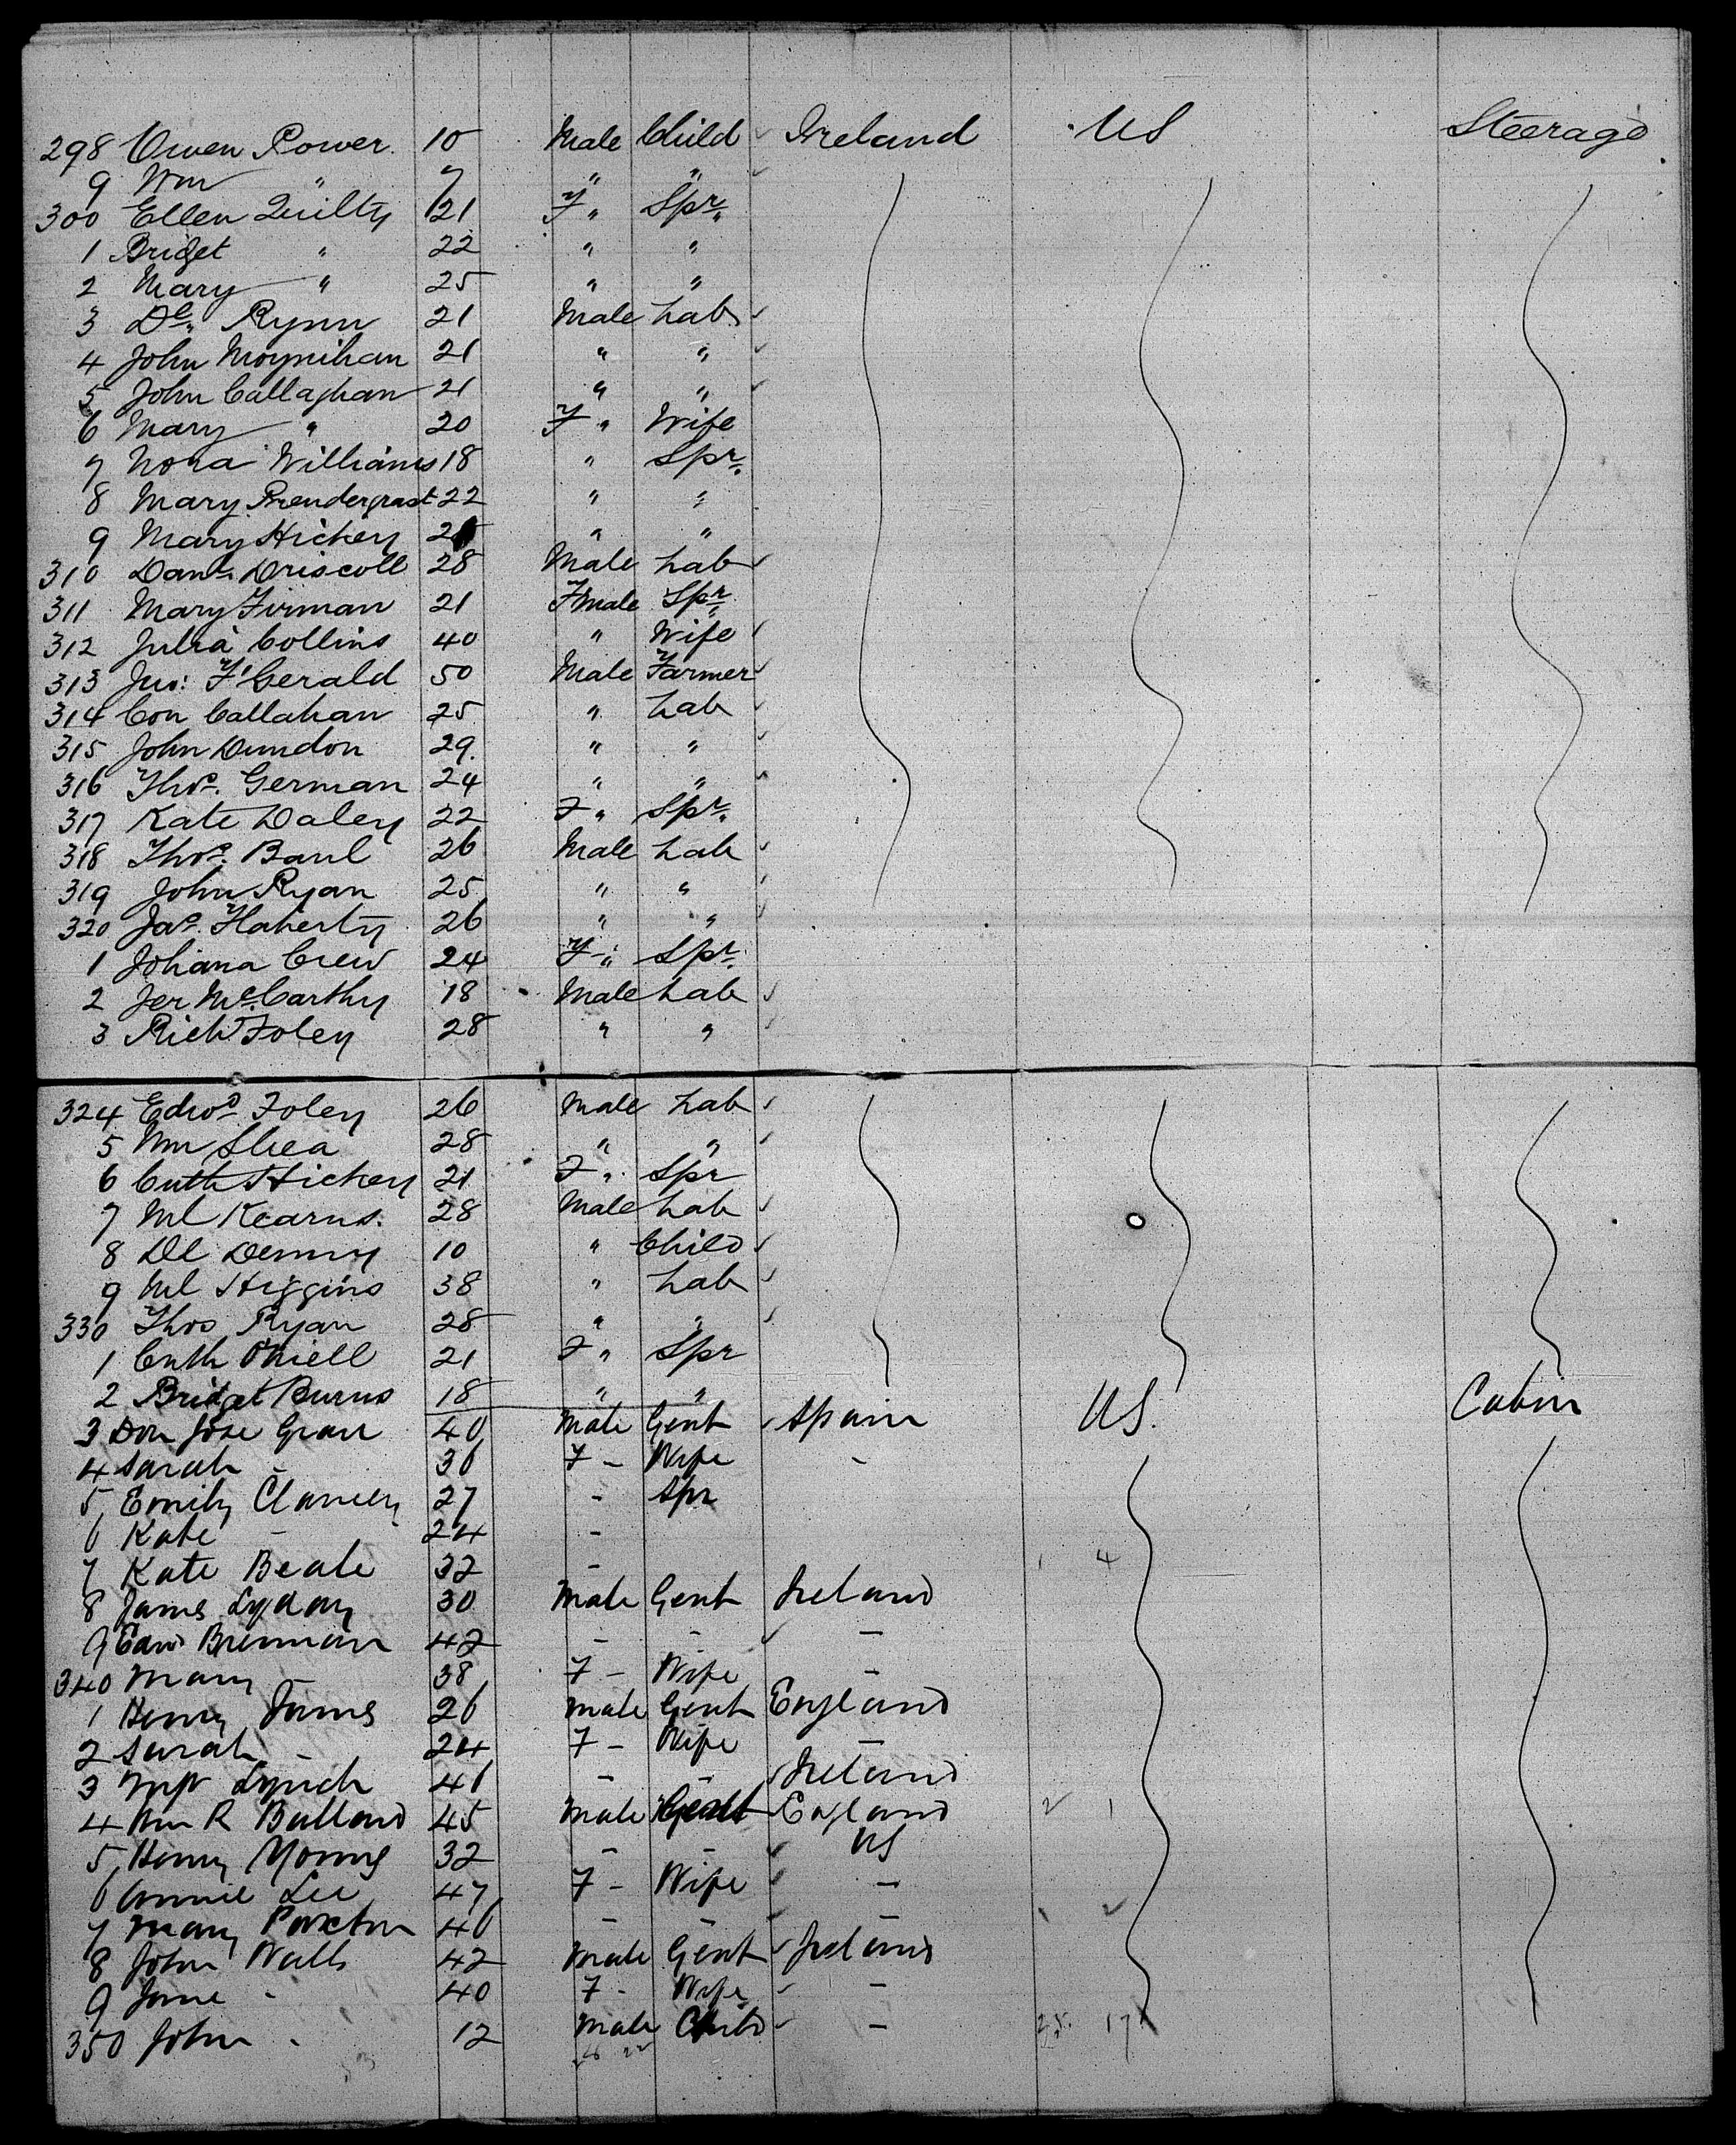 298 Owen Power 10 Male Child Ireland US Steerage
9 Wm " 7 " "
300 Ellen Quilty 21 F " Spr
1 Bridget " 22 " "
2 Mary " 25 " "
3 Dl Rynn 21 Male Lab
4 John Moynihan 21 " "
5 John Callaghan 21 " "
6 Mary " 20 F " Wife
7 Nora Williams 18 " Spr
8 Mary Prendergast 22 " "
9 Mary Hickey " "
310 Danl Driscoll 28 Male Lab
311 Mary Firman 21 Fmale Spr
312 Julia Collins 40 " Wife
313 Jno: F'Gerald 50 Male Farmer
314 Con Callahan 25 " Lab
315 John Dundon 29 " "
316 Thos. German 24 " "
317 Kate Daley 22 F " Spr
318 Thos. Baul 26 Male Lab
319 John Ryan 25 " "
320 Jas. Flaherty 26 " "
1 Johana Crew 24 F " Spr
2 Jer McCarthy 18 Male Lab
3 Richd Foley 28 " "
324 Edwd Foley 26 Male Lab
5 Wm Shea 28 " "
6 Cath Hickey 21 F " Spr
7 Ml Kearns. 28 Male Lab
8 Dl Denny 10 " Child
9 Ml Higgins 38 " Lab
330 Thos Ryan 28 " "
1 Cath O'Niell 21 F " Spr
2 Bridget Burns 18 " "
3 Don Jose Grau 40 Male Gent Spain US. Cabin
4 Sarah - 36 F - Wife -
5 Emily Clancey 27 - Spr
6 Kate - 24 -
7 Kate Beale 32 -
8 James Lyday 30 Male Gent Ireland
9 Edwd Brennan 42 - - -
340 Mary - 38 F - Wife -
1 Henry James 26 Male Gent England
2 Sarah - 24 F - Wife -
3 Lynch 46 - - Ireland
4 Wm R Ballard 45 Male Gent England
5 Henry Young 32 - - US
6 Annie Lee 47 F - Wife -
7 Mary Paxton 46 - - -
8 John Walls 42 Male Gent Ireland
9 Jane - 40 F - Wife -
350 John - 12 Male Child -